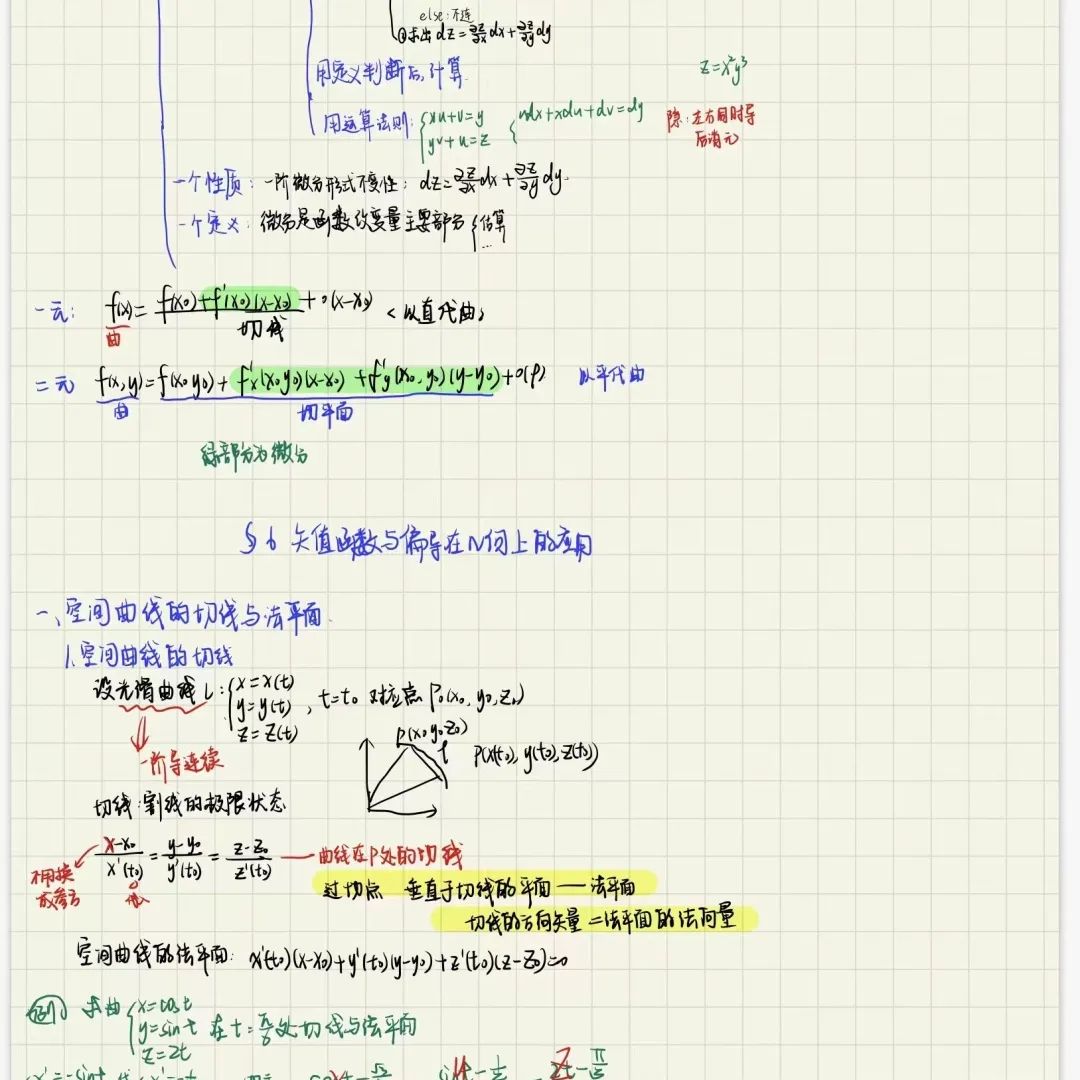 else:不连
①求出dz=∂z/∂x dx+∂z/∂y dy
用定义判断后,计算.
z=x²y³
用运算法则: { xu+v=y  { udx+xdu+dv=dy
yv+u=z
隐:左右同时导
后消元
一个性质: 一阶微分形式不变性: dz=∂z/∂x dx+∂z/∂y dy.
一个定义: 微分是函数改变量主要部分 { 估算
...
一元: f(x)=f(x₀)+f'(x₀)(x-x₀)+o(x-x₀) <以直代曲>
曲 切线
二元 f(x,y)=f(x₀y₀)+f'x(x₀y₀)(x-x₀)+f'y(x₀,y₀)(y-y₀)+o(ρ) 以平代曲
曲 切平面
绿部分为微分
§6 矢值函数与偏导在几何上的应用
一、空间曲线的切线与法平面.
1.空间曲线的切线
设光滑曲线L: { x=x(t)
y=y(t) , t=t₀ 对应点P₀(x₀,y₀,z₀)
z=z(t)
P(x₀y₀z₀)
P(x(t₀),y(t₀),z(t₀))
一阶导连续
切线:割线的极限状态
x-x₀/x'(t₀)=y-y₀/y'(t₀)=z-z₀/z'(t₀) — 曲线在P处的切线
不用换
成参方
过切点 垂直于切线的平面——法平面
切线的方向矢量=法平面的法向量
空间曲线的法平面: x'(t₀)(x-x₀)+y'(t₀)(y-y₀)+z'(t₀)(z-z₀)=0
例 求曲 { x=cost
y=sint 在t=π/6处切线与法平面
z=2t